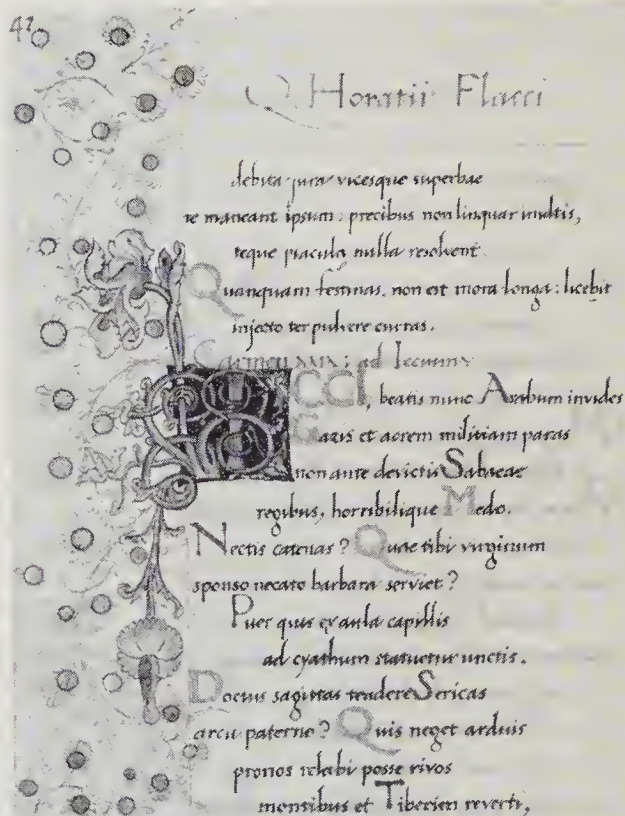 Q Horatii Flacci
debita jura vicesque superbae
te maneant ipsum : precibus non linquar inultis,
teque piacula nulla resolvent.
Quanquam festinas, non est mora longa : licebit
injecto ter pulvere curras.
Carmen XXIX : ad Iccium
ICCI, beatis nunc Arabum invides
Gazis et acrem militiam paras
non ante devictis Sabaeae
regibus, horribilique Medo.
Nectis catenas ? Quae tibi virginum
sponso necato barbara serviet ?
Puer quis ex aula capillis
ad cyathum statuetur unctis,
Doctus sagittas tendere Sericas
arcu paterno ? Quis neget arduis
pronos relabi posse rivos
montibus et Tiberim reverti,